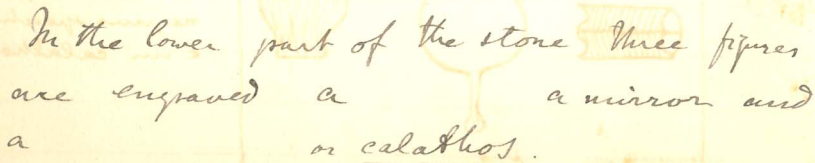 In the lower part of the stone three figures
are engraved a a mirror and
a or calathos.